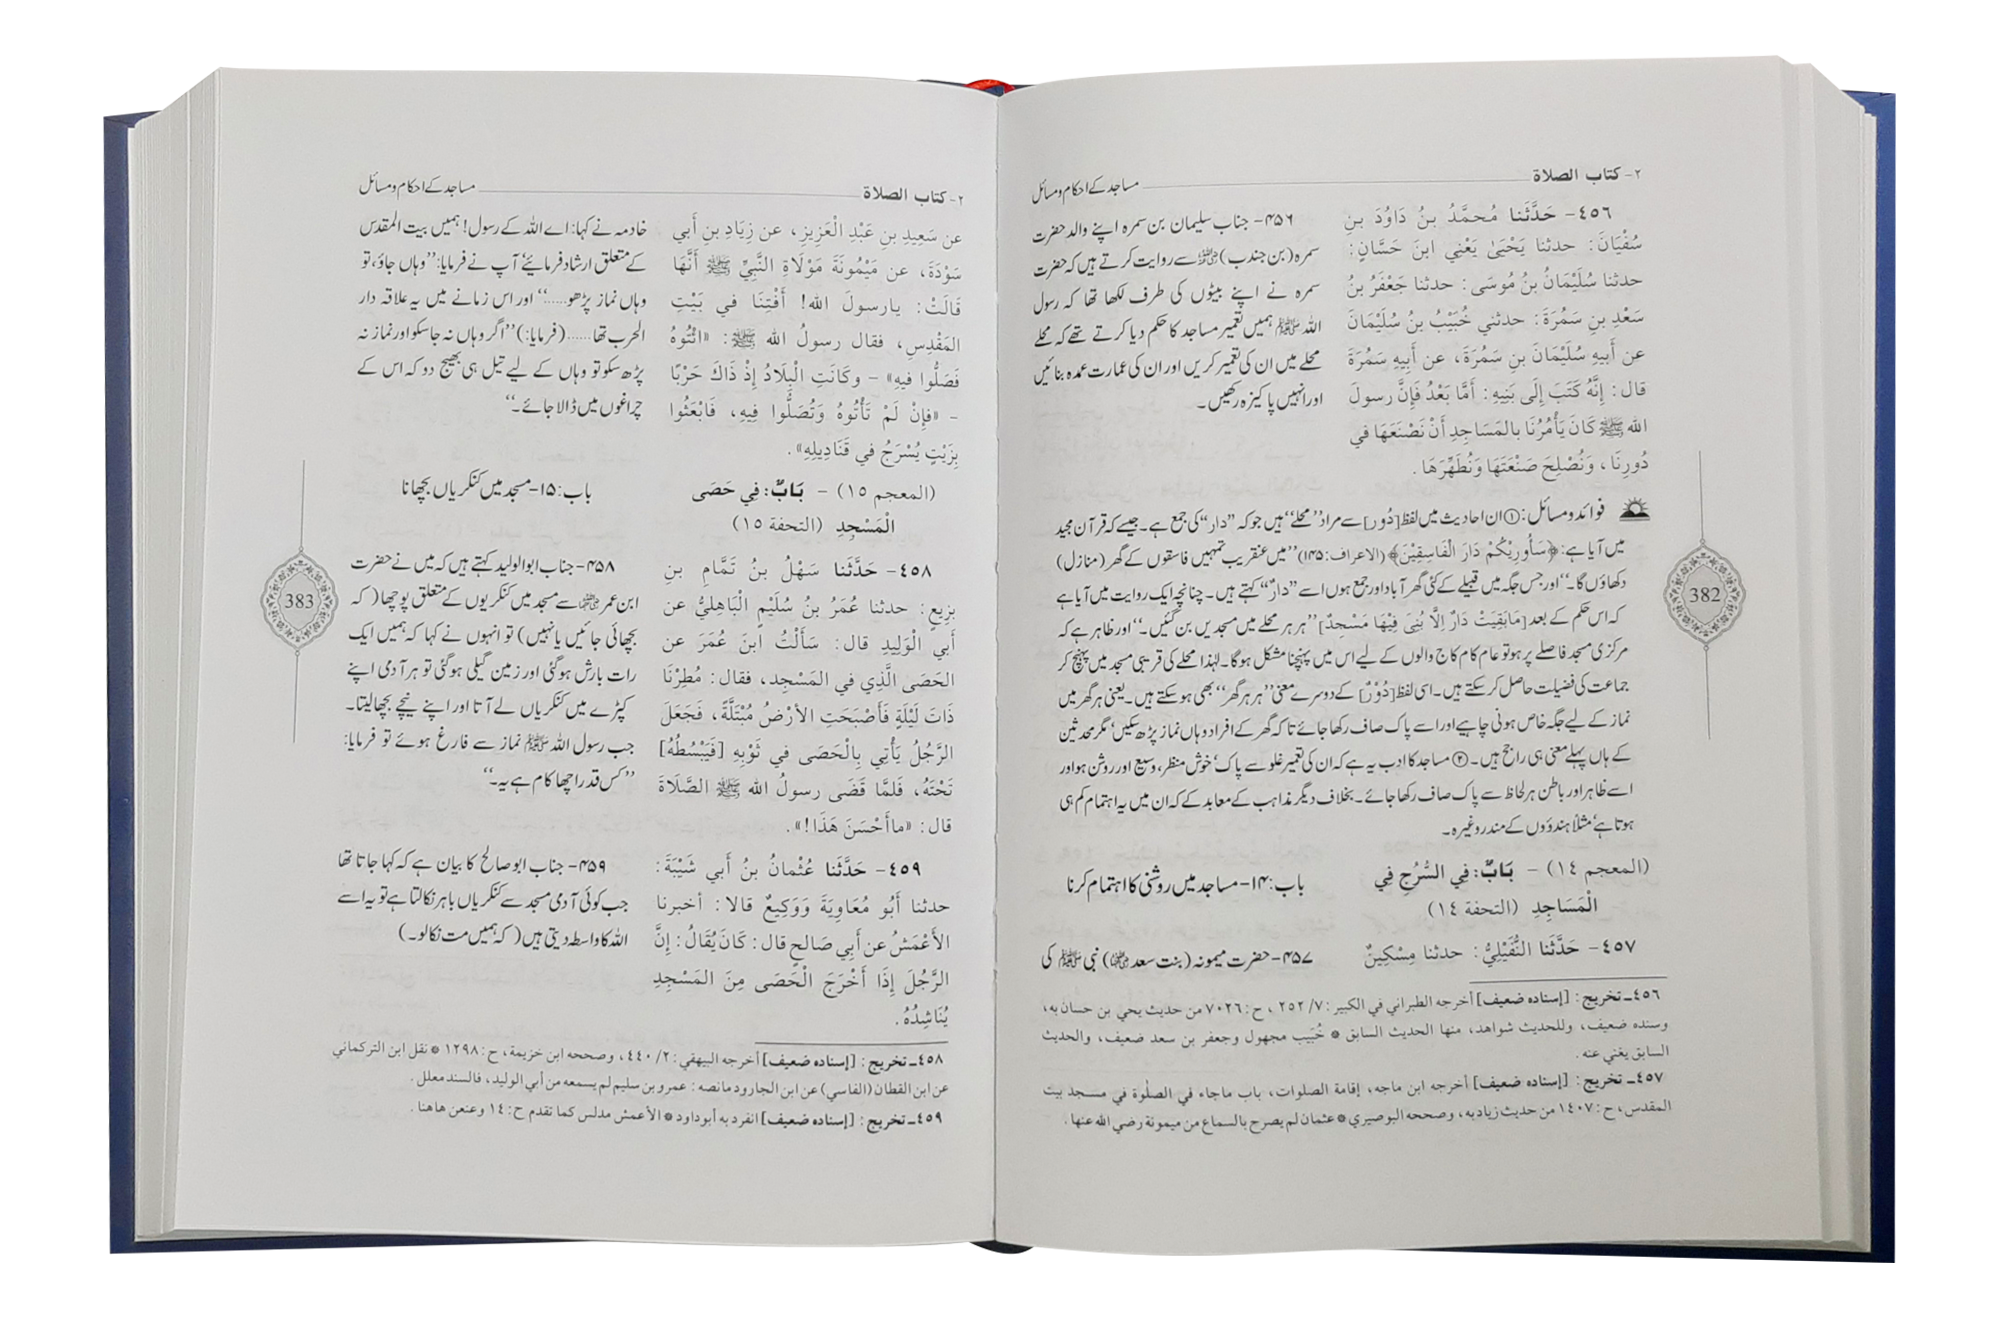 ٢- كتاب الصلاة
مساجد کے احکام و مسائل
٤٥٦- حَدَّثَنا مُحمَّدُ بنُ دَاوُدَ بنِ
سُفْيَانَ: حدثنا يَحْيَىٰ يَعْني ابنَ حَسَّانٍ:
حدثنا سُلَيْمَانُ بنُ مُوسَى: حدثنا جَعْفَرُ بنُ
سَعْدِ بنِ سَمُرَةَ: حدثني خُبَيْبُ بنُ سُلَيْمَانَ
عن أبيهِ سُلَيْمَانَ بنِ سَمُرَةَ، عن أبِيهِ سَمُرَةَ
قال: إنَّهُ كَتَبَ إلَى بَنِيهِ: أمَّا بَعْدُ فَإنَّ رسولَ
الله ﷺ كَانَ يَأْمُرُنَا بالمَسَاجِدِ أنْ نَصْنَعَهَا في
دُورِنَا، وَنُصْلِحَ صَنْعَتَهَا وَنُطَهِّرَهَا.
۴۵۶- جناب سلیمان بن سمرہ اپنے والد حضرت
سمرہ (بن جندب) ؓ سے روایت کرتے ہیں کہ حضرت
سمرہ نے اپنے بیٹوں کی طرف لکھا تھا کہ رسول
اللہ ﷺ ہمیں تعمیر مساجد کا حکم دیا کرتے تھے کہ محلے
محلے میں ان کی تعمیر کریں اور ان کی عمارت عمدہ بنائیں
اور انہیں پاکیزہ رکھیں۔
فوائد و مسائل: ① ان احادیث میں لفظ [دُور] سے مراد ’’محلے‘‘ ہیں جو کہ ’’دار‘‘ کی جمع ہے۔ جیسے کہ قرآن مجید
میں آیا ہے: ﴿سَأُورِيْكُمْ دَارَ الْفَاسِقِيْنَ﴾ (الاعراف:۱۴۵) ’’میں عنقریب تمہیں فاسقوں کے گھر (منازل)
دکھاؤں گا۔‘‘ اور جس جگہ میں قبیلے کے کئی گھر آباد اور جمع ہوں اسے ’’دارٌ‘‘ کہتے ہیں۔ چنانچہ ایک روایت میں آیا ہے
کہ اس حکم کے بعد [مَابَقِيَتْ دَارٌ اِلَّا بُنِىَ فِيْهَا مَسْجِدٌ] ’’ہر ہر محلے میں مسجدیں بن گئیں۔‘‘ اور ظاہر ہے کہ
مرکزی مسجد فاصلے پر ہو تو عام کام کاج والوں کے لیے اس میں پہنچنا مشکل ہوگا۔ لہٰذا محلے کی قریبی مسجد میں پہنچ کر
جماعت کی فضیلت حاصل کر سکتے ہیں۔ اسی لفظ [دُوْرٌ] کے دوسرے معنی ’’ہر ہر گھر‘‘ بھی ہو سکتے ہیں۔ یعنی ہر گھر میں
نماز کے لیے جگہ خاص ہونی چاہیے اور اسے پاک صاف رکھا جائے تاکہ گھر کے افراد وہاں نماز پڑھ سکیں‘ مگر محدثین
کے ہاں پہلے معنی ہی راجح ہیں۔ ② مساجد کا ادب یہ ہے کہ ان کی تعمیر غلو سے پاک‘ خوش منظر، وسیع اور روشن ہو اور
اسے ظاہر اور باطن ہر لحاظ سے پاک صاف رکھا جائے۔ بخلاف دیگر مذاہب کے معابد کے کہ ان میں یہ اہتمام کم ہی
ہوتا ہے‘ مثلاً ہندوؤں کے مندر وغیرہ۔
(المعجم ١٤) - بَابٌ: فِي السُّرُجِ فِي
الْمَسَاجِدِ (التحفة ١٤)
باب:۱۴- مساجد میں روشنی کا اہتمام کرنا
٤٥٧- حَدَّثَنا النُّفَيْلِيُّ: حدثنا مِسْكِينٌ
۴۵۷- حضرت میمونہ (بنت سعد ؓ) نبی ﷺ کی
٤٥٦ـ تخريج: [إسناده ضعيف] أخرجه الطبراني في الكبير: ٧/ ٢٥٢، ح: ٧٠٢٦ من حديث يحي بن حسان به،
وسنده ضعيف، وللحديث شواهد، منها الحديث السابق * خُبَيب مجهول وجعفر بن سعد ضعيف، والحديث
السابق يغني عنه.
٤٥٧ـ تخريج: [إسناده ضعيف] أخرجه ابن ماجه، إقامة الصلوات، باب ماجاء في الصلٰوة في مسجد بيت
المقدس، ح: ١٤٠٧ من حديث زياد به، وصححه البوصيري * عثمان لم يصرح بالسماع من ميمونة رضي الله عنها.
382
٢- كتاب الصلاة
مساجد کے احکام و مسائل
عن سَعِيدِ بنِ عَبْدِ الْعَزِيزِ، عن زِيَادِ بنِ أبي
سَوْدَةَ، عن مَيْمُونَةَ مَوْلَاةِ النَّبيِّ ﷺ أنَّهَا
قَالَتْ: يارسولَ الله! أَفْتِنَا في بَيْتِ
المَقْدِسِ، فقال رسولُ الله ﷺ: «ائْتُوهُ
فَصَلُّوا فيهِ» - وكَانَتِ الْبِلَادُ إذْ ذَاكَ حَرْبًا
- «فإنْ لَمْ تَأْتُوهُ وَتُصَلُّوا فِيهِ، فَابْعَثُوا
بِزَيْتٍ يُسْرَجُ في قَنَادِيلِهِ».
خادمہ نے کہا: اے اللہ کے رسول! ہمیں بیت المقدس
کے متعلق ارشاد فرمایئے‘ آپ نے فرمایا: ’’وہاں جاؤ، تو
وہاں نماز پڑھو......‘‘ اور اس زمانے میں یہ علاقہ دار
الحرب تھا......(فرمایا:) ’’اگر وہاں نہ جاسکو اور نماز نہ
پڑھ سکو تو وہاں کے لیے تیل ہی بھیج دو کہ اس کے
چراغوں میں ڈالا جائے۔‘‘
(المعجم ١٥) - بَابٌ: فِي حَصَى
الْمَسْجِدِ (التحفة ١٥)
باب:۱۵- مسجد میں کنکریاں بچھانا
٤٥٨- حَدَّثَنا سَهْلُ بنُ تَمَّامِ بنِ
بزِيعٍ: حدثنا عُمَرُ بنُ سُلَيْمٍ الْبَاهِليُّ عن
أبي الْوَلِيدِ قال: سَألْتُ ابنَ عُمَرَ عن
الحَصَى الَّذِي في المَسْجِدِ، فقال: مُطِرْنَا
ذَاتَ لَيْلَةٍ فَأصْبَحَتِ الأرْضُ مُبْتَلَّةً، فَجَعَلَ
الرَّجُلُ يَأْتِي بِالْحَصَى في ثَوْبِهِ [فَيَبْسُطُهُ]
تَحْتَهُ، فَلمَّا قَضَى رسولُ الله ﷺ الصَّلَاةَ
قال: «ماأحْسَنَ هَذَا!».
۴۵۸- جناب ابوالولید کہتے ہیں کہ میں نے حضرت
ابن عمر ؓ سے مسجد میں کنکریوں کے متعلق پوچھا (کہ
بچھائی جائیں یا نہیں) تو انہوں نے کہا کہ ہمیں ایک
رات بارش ہوگئی اور زمین گیلی ہوگئی تو ہر آدمی اپنے
کپڑے میں کنکریاں لے آتا اور اپنے نیچے بچھا لیتا۔
جب رسول اللہ ﷺ نماز سے فارغ ہوئے تو فرمایا:
’’کس قدر اچھا کام ہے یہ۔‘‘
٤٥٩- حَدَّثَنا عُثْمانُ بنُ أبي شَيْبَةَ:
حدثنا أبُو مُعَاوِيَةَ وَوَكِيعٌ قالا: أخبرنا
الأعْمَشُ عن أبي صَالحٍ قال: كَانَ يُقَالُ: إنَّ
الرَّجُلَ إذَا أخْرَجَ الْحَصَى مِنَ المَسْجِدِ
يُنَاشِدُهُ.
۴۵۹- جناب ابو صالح کا بیان ہے کہ کہا جاتا تھا
جب کوئی آدمی مسجد سے کنکریاں باہر نکالتا ہے تو یہ اسے
اللہ کا واسطہ دیتی ہیں (کہ ہمیں مت نکالو۔)
٤٥٨ـ تخريج: [إسناده ضعيف] أخرجه البيهقي: ٢/ ٤٤٠، وصححه ابن خزيمة، ح: ١٢٩٨ * نقل ابن التركماني
عن ابن القطان (الفاسي) عن ابن الجارود مانصه: عمرو بن سليم لم يسمعه من أبي الوليد، فالسند معلل.
٤٥٩ـ تخريج: [إسناده ضعيف] انفرد به أبوداود * الأعمش مدلس كما تقدم ح: ١٤ وعنعن هاهنا.
383